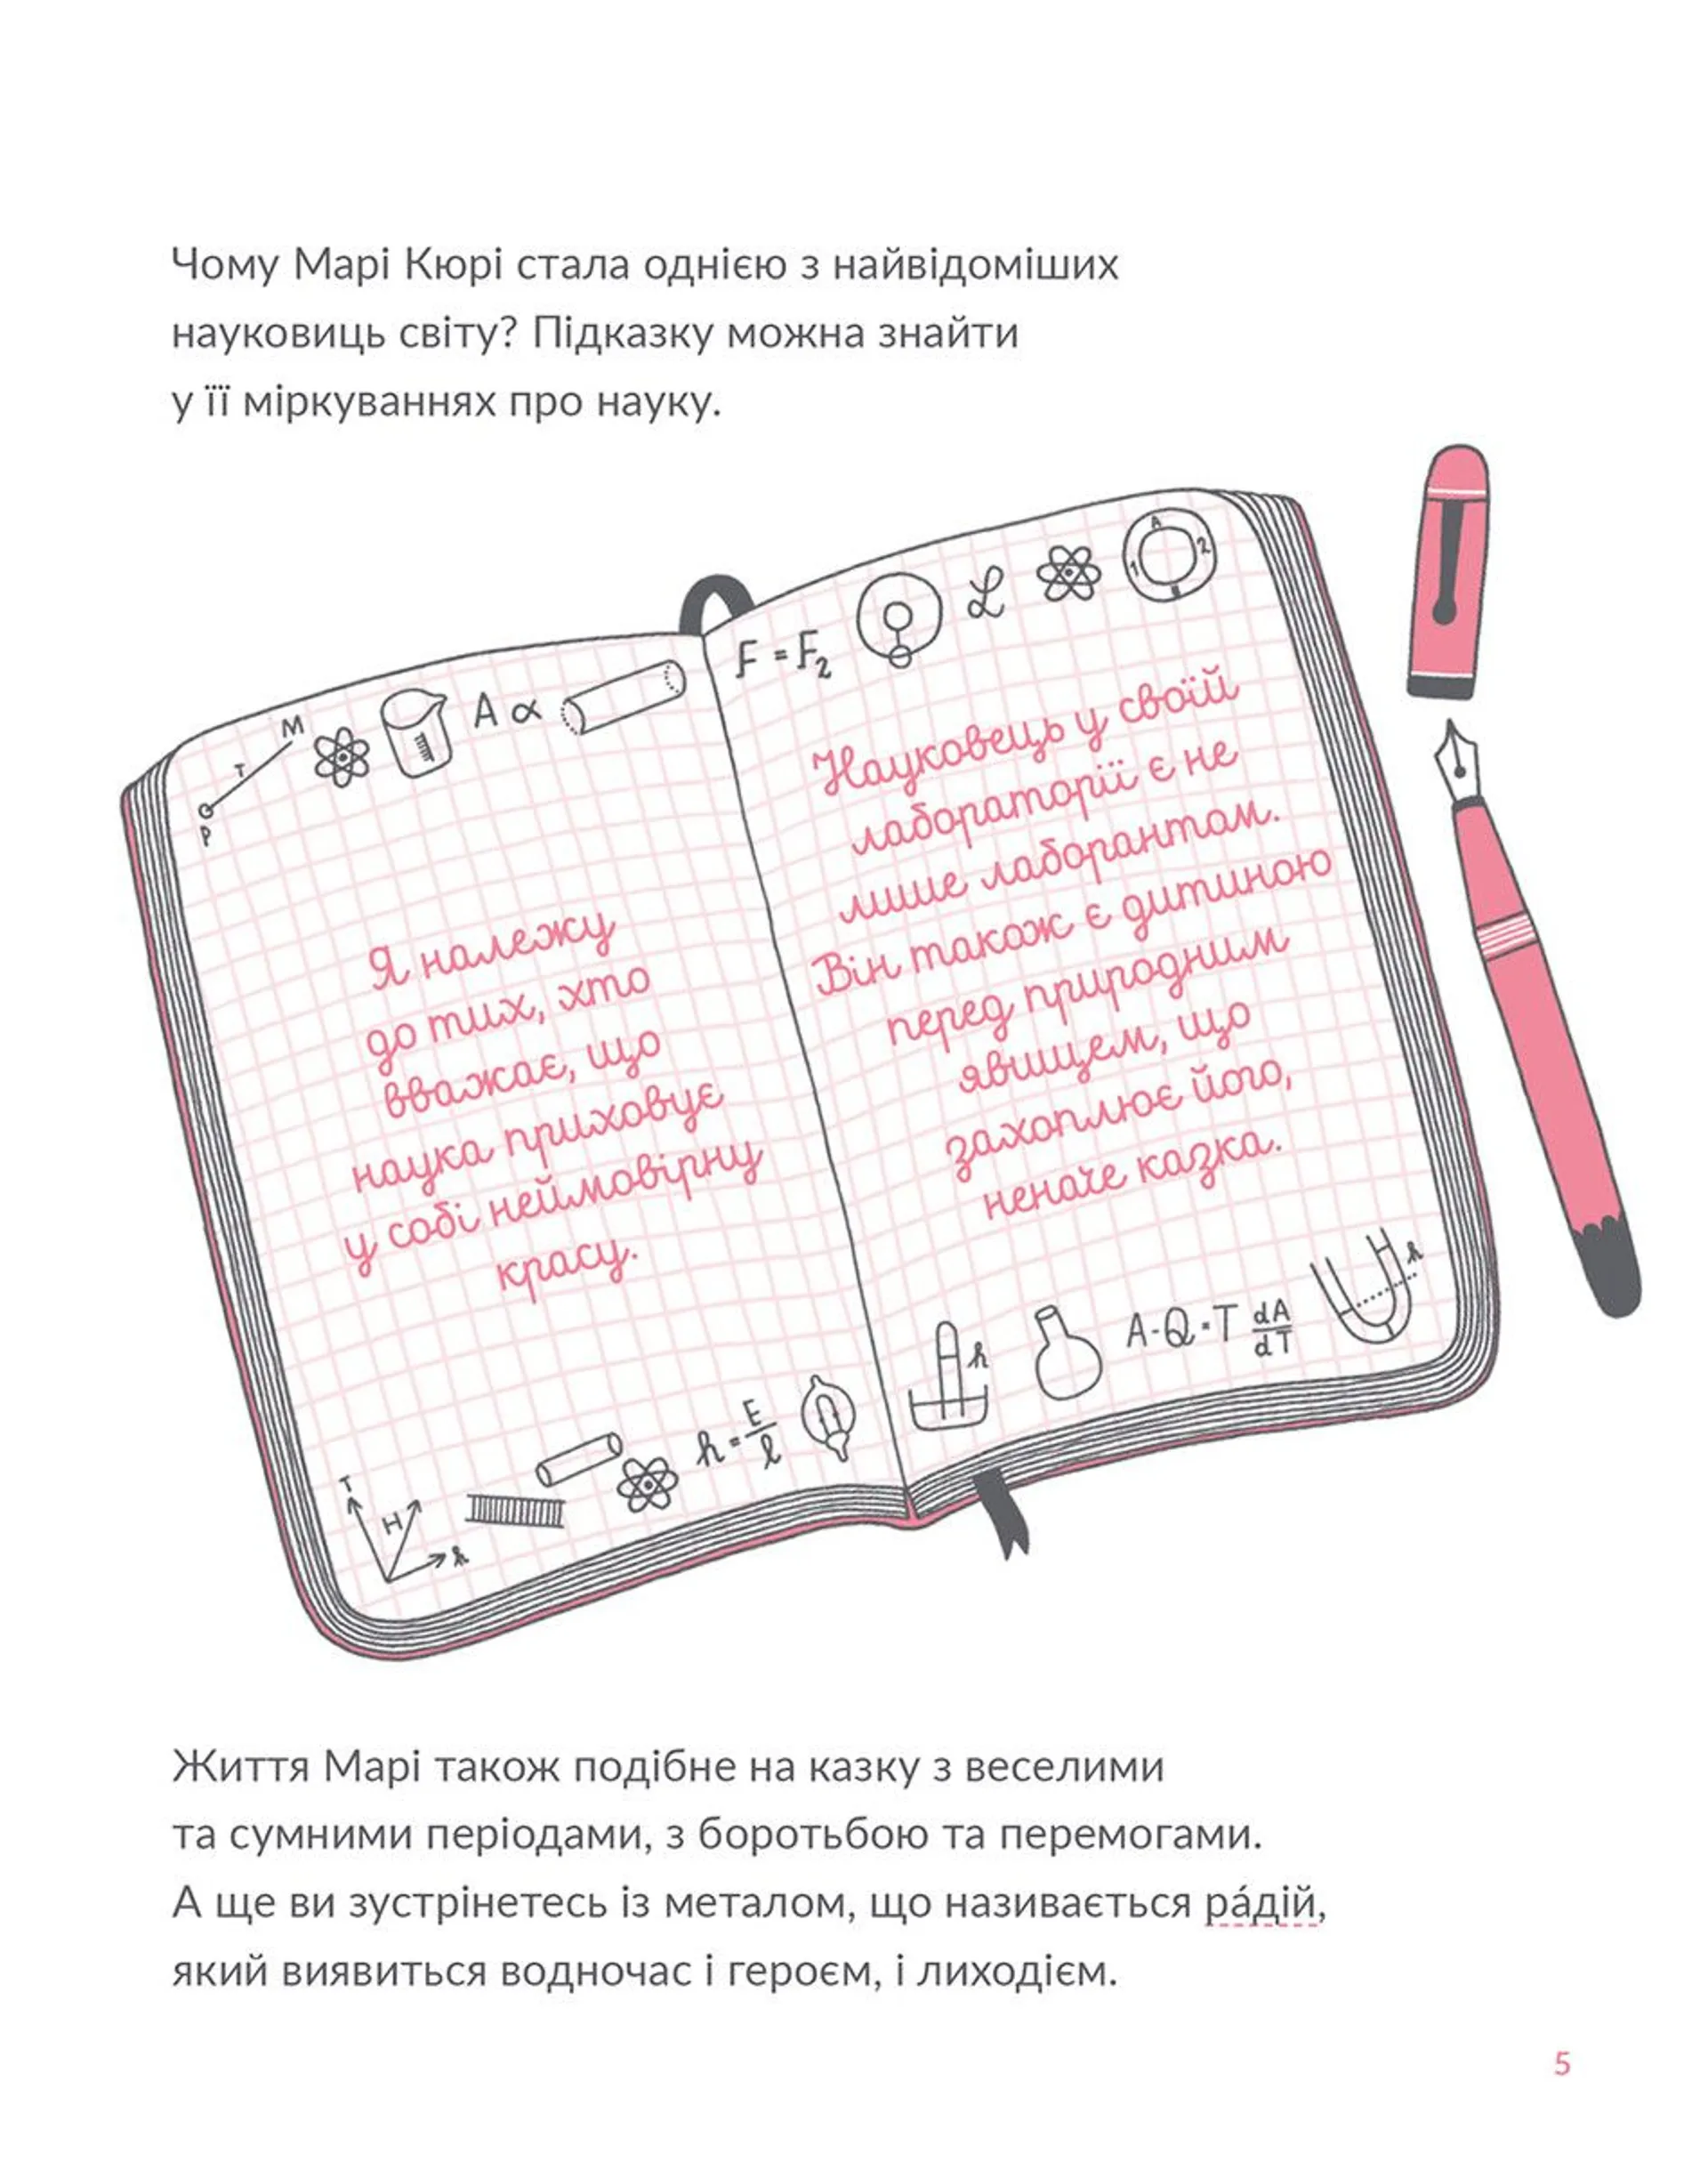 Чому Марі Кюрі стала однією з найвідоміших
науковиць світу? Підказку можна знайти
у її міркуваннях про науку.
M
T
P
A ∝
Я належу
до тих, хто
вважає, що
наука приховує
у собі неймовірну
красу.
T
H
h
h = E/l
F = F₂
ℒ
A
1
2
Науковець у своїй
лабораторії є не
лише лаборантом.
Він також є дитиною
перед природним
явищем, що
захоплює його,
неначе казка.
h
A-Q·T dA/dT
h
Життя Марі також подібне на казку з веселими
та сумними періодами, з боротьбою та перемогами.
А ще ви зустрінетесь із металом, що називається ра́дій,
який виявиться водночас і героєм, і лиходієм.
5